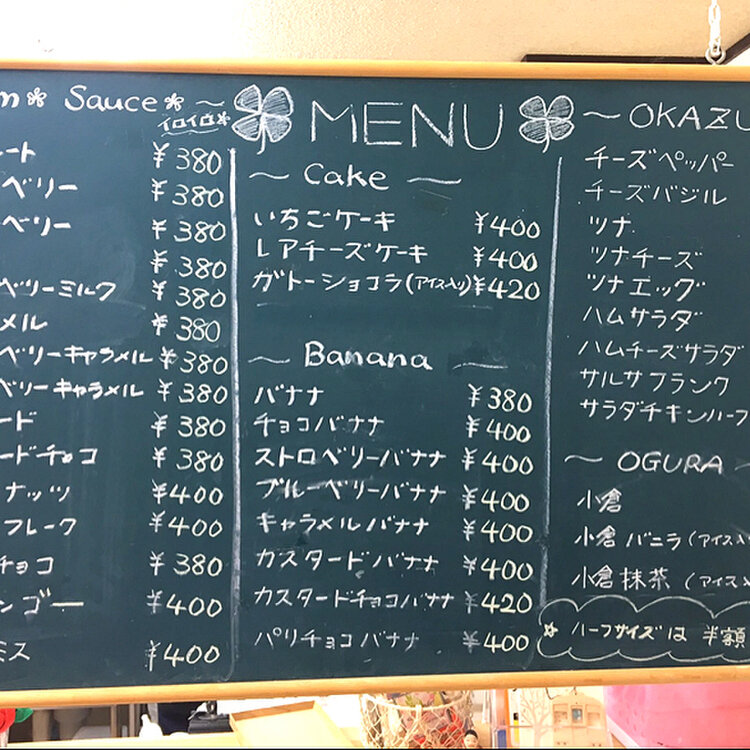 m* Sauce* ~
イロイロ*
ート ¥380
ベリー ¥380
ベリー ¥380
¥380
ベリーミルク ¥380
メル ¥380
ベリーキャラメル ¥380
ベリーキャラメル ¥380
ード ¥380
ードチョコ ¥380
ナッツ ¥400
フレーク ¥400
チョコ ¥380
ンゴー ¥400
ミス ¥400
MENU
~ Cake ~
いちごケーキ ¥400
レアチーズケーキ ¥400
ガトーショコラ(アイス入り) ¥420
~ Banana
バナナ ¥380
チョコバナナ ¥400
ストロベリーバナナ ¥400
ブルーベリーバナナ ¥400
キャラメルバナナ ¥400
カスタードバナナ ¥400
カスタードチョコバナナ ¥420
パリチョコバナナ ¥400
~ OKAZU
チーズペッパー
チーズバジル
ツナ
ツナチーズ
ツナエッグ
ハムサラダ
ハムチーズサラダ
サルサフランク
サラダチキンハーフ
~ OGURA
小倉
小倉バニラ(アイス入
小倉抹茶(アイス
☆ ハーフサイズは半額